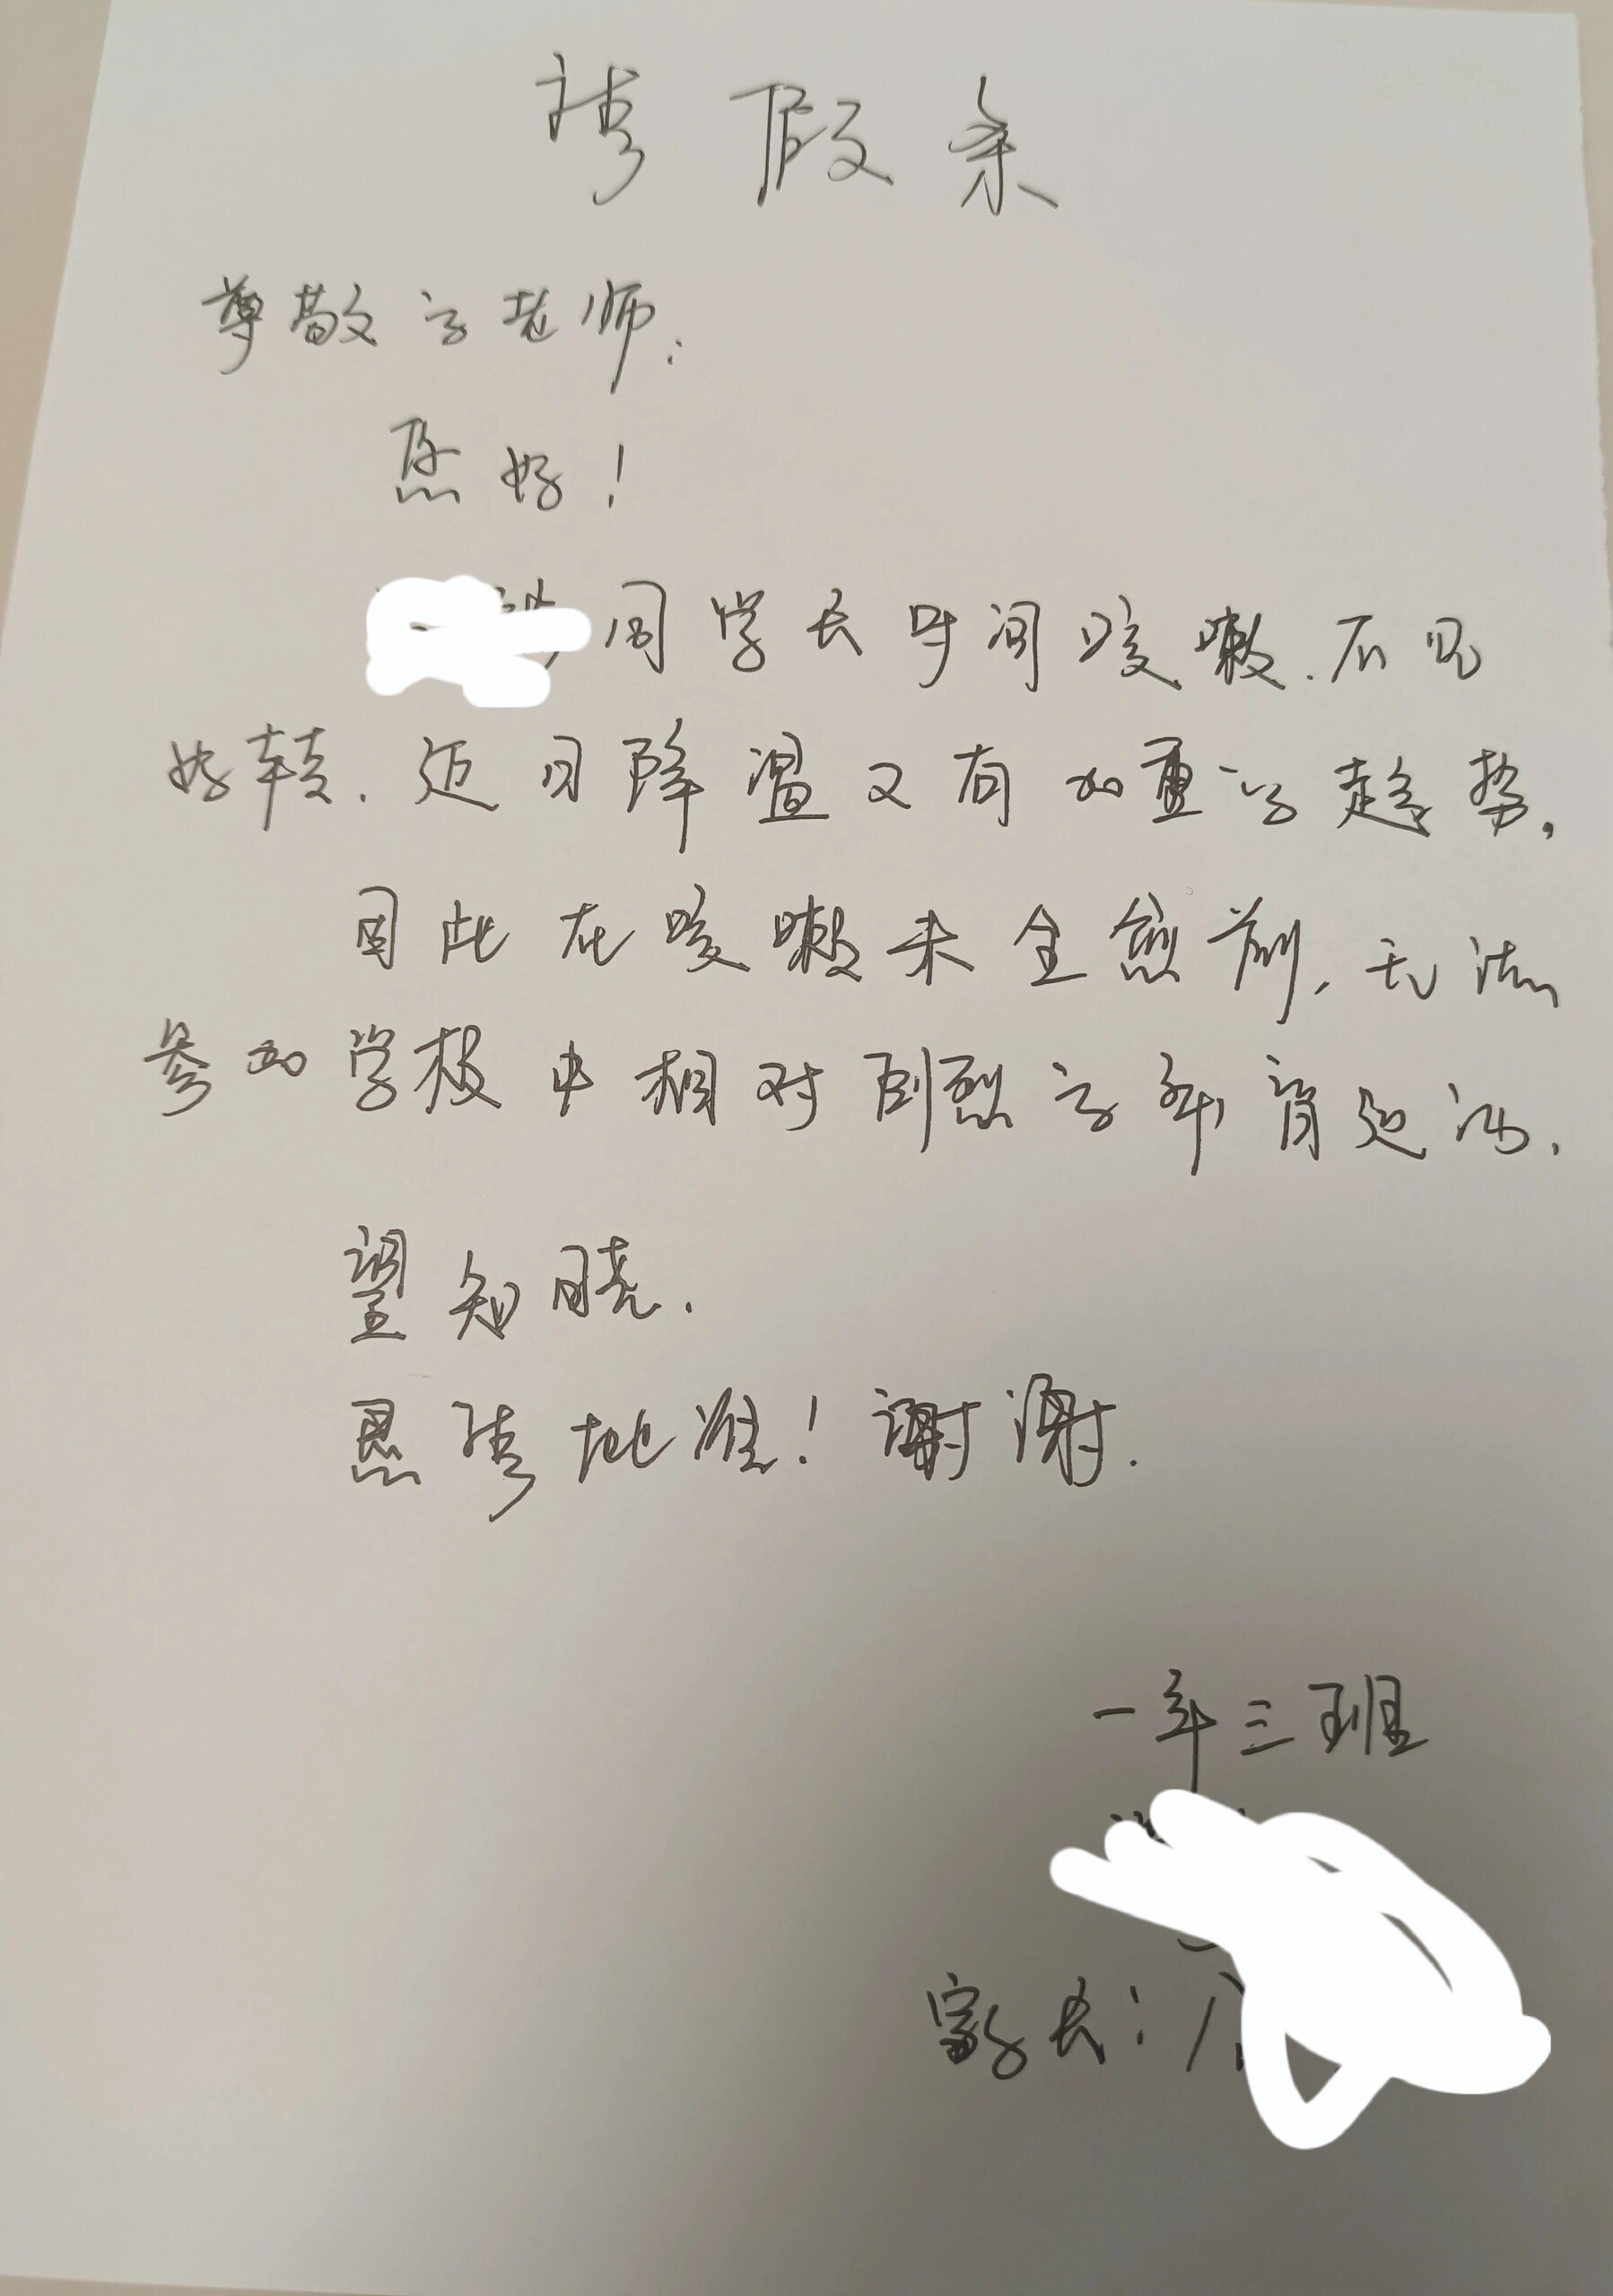 请假条
尊敬的老师:
您好!
同学长时间咳嗽.不见
好转.近日降温又有加重的趋势,
因此在咳嗽未全愈前,无法
参加学校中相对剧烈的体育运动.
望知晓.
恳请批准!谢谢.
一年三班
家长: